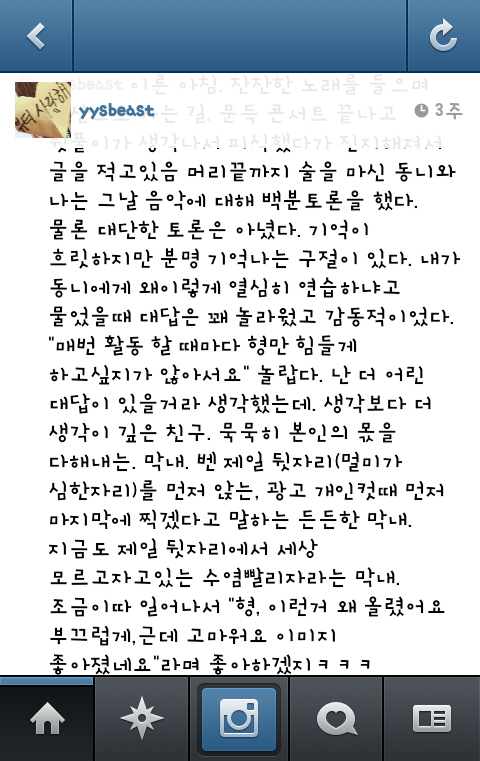 부터 사랑해
yysbeast
3주
이른 아침. 잔잔한 노래를 들으며
는 길. 문득 콘서트 끝나고
뒷풀이가 생각나서 피식했다가 진지해져서
글을 적고있음 머리끝까지 술을 마신 동니와
나는 그날 음악에 대해 백분토론을 했다.
물론 대단한 토론은 아녔다. 기억이
흐릿하지만 분명 기억나는 구절이 있다. 내가
동니에게 왜이렇게 열심히 연습하냐고
물었을때 대답은 꽤 놀라웠고 감동적이었다.
"매번 활동 할 때마다 형만 힘들게
하고싶지가 않아서요" 놀랍다. 난 더 어린
대답이 있을거라 생각했는데. 생각보다 더
생각이 깊은 친구. 묵묵히 본인의 몫을
다해내는. 막내. 벤 제일 뒷자리(멀미가
심한자리)를 먼저 앉는, 광고 개인컷때 먼저
마지막에 찍겠다고 말하는 든든한 막내.
지금도 제일 뒷자리에서 세상
모르고자고있는 수염빨리자라는 막내.
조금이따 일어나서 "형, 이런거 왜 올렸어요
부끄럽게,근데 고마워요 이미지
좋아졌네요"라며 좋아하겠지ㅋㅋㅋ